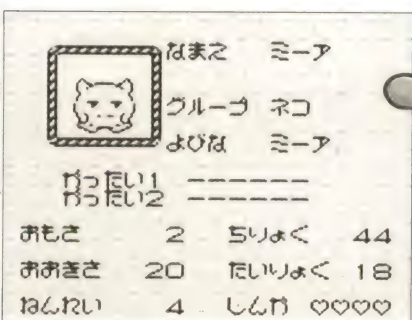 なまえ ミーア
グループ ネコ
よびな ミーア
がったい1 ------
がったい2 ------
おもさ 2 ちりょく 44
おおきさ 20 たいりょく 18
ねんれい 4 しんか ♡♡♡♡